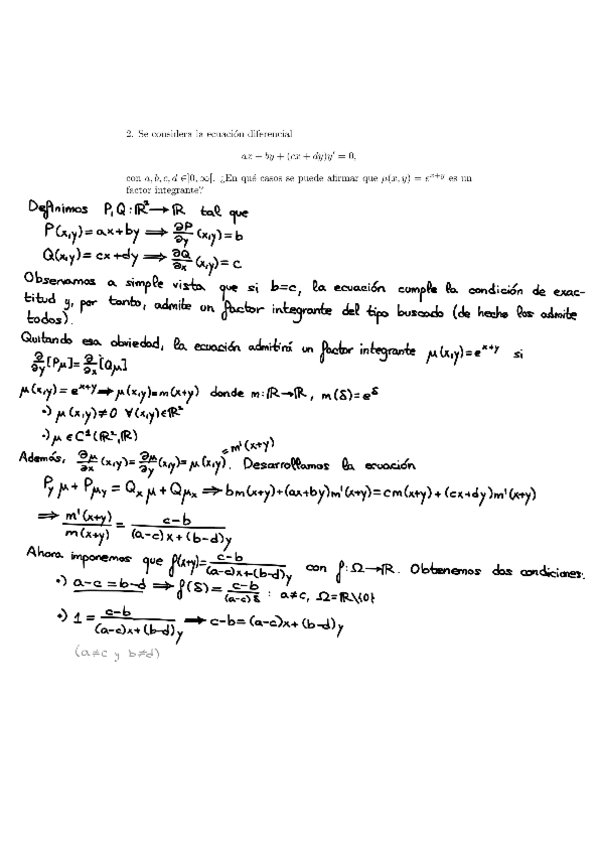 2. Se considera la ecuación diferencial
ax − by + (cx + dy)y′ = 0,
con a, b, c, d ∈]0, ∞[. ¿En qué casos se puede afirmar que μ(x, y) = e^{x+y} es un
factor integrante?
Definimos P, Q : ℝ² → ℝ tal que
P(x,y) = ax + by ⟹ ∂P/∂y (x,y) = b
Q(x,y) = cx + dy ⟹ ∂Q/∂x (x,y) = c
Observamos a simple vista que si b=c, la ecuación cumple la condición de exac-
titud y, por tanto, admite un factor integrante del tipo buscado (de hecho los admite
todos).
Quitando esa obviedad, la ecuación admitirá un factor integrante μ(x,y) = e^{x+y} si
∂/∂y [Pμ] = ∂/∂x [Qμ]
μ(x,y) = e^{x+y} ⟹ μ(x,y) = m(x+y) donde m: ℝ → ℝ, m(δ) = e^δ
•) μ(x,y) ≠ 0 ∀(x,y) ∈ ℝ²
•) μ ∈ C¹(ℝ², ℝ)
Además, ∂μ/∂x (x,y) = ∂μ/∂y (x,y) = μ(x,y) = m'(x+y). Desarrollamos la ecuación
P_y μ + P μ_y = Q_x μ + Q μ_x ⟹ b m(x+y) + (ax+by) m'(x+y) = c m(x+y) + (cx+dy) m'(x+y)
⟹ m'(x+y)/m(x+y) = (c−b)/((a−c)x + (b−d)y)
Ahora imponemos que f(x+y) = (c−b)/((a−c)x+(b−d)y) con f: Ω → ℝ. Obtenemos dos condiciones:
•) a−c = b−d ⟹ f(δ) = (c−b)/((a−c)δ) : a≠c, Ω = ℝ\{0}
•) 1 = (c−b)/((a−c)x + (b−d)y) ⟶ c−b = (a−c)x + (b−d)y
(a≠c y b≠d)